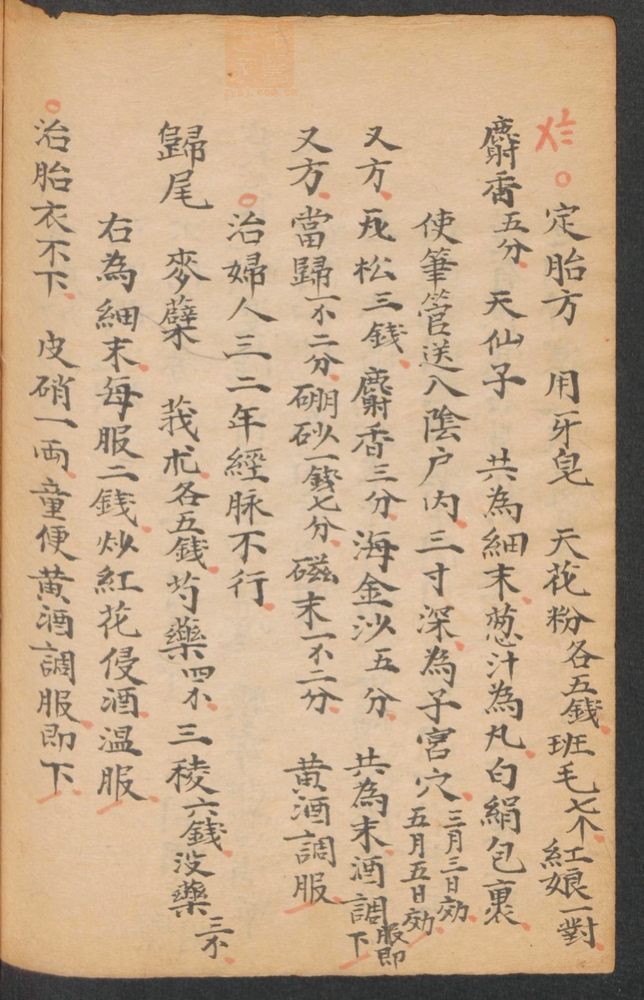 定胎方　用牙皂　天花粉各五錢班毛七个紅娘一對
麝香五分　天仙子　共為細末葱汁為丸白絹包裹
使筆管送入陰户内三寸深為子宮穴三月三日効五月五日効
又方　松三錢麝香三分海金沙五分　共為末酒調服即下
又方當歸一不二分硼砂一錢七分磁末一不二分　黄酒調服
治婦人三二年經脉不行
歸尾　麥蘖　莪朮各五錢芍藥四不三稜六錢没藥三不
右為細末每服二錢炒紅花侵酒温服
治胎衣不下　皮硝一両童便黄酒調服即下